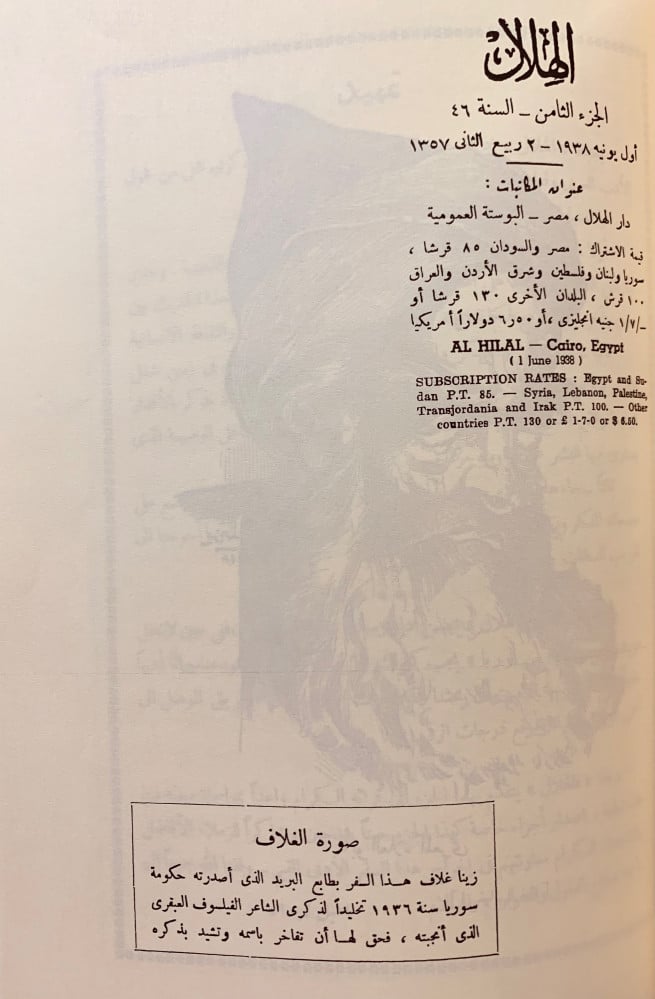 الهلال
الجزء الثامن – السنة ٤٦
أول يونيه ١٩٣٨ – ٢ ربيع الثانى ١٣٥٧
عنوان المكاتبات :
دار الهلال ، مصر – البوستة العمومية
قيمة الاشتراك : مصر والسودان ٨٥ قرشا ،
سوريا ولبنان وفلسطين وشرق الأردن والعراق
١٠٠ قرش ، البلدان الأخرى ١٣٠ قرشا أو
-/١/٧ جنيه انجليزى ، أو ٥٠ر٦ دولاراً أمريكيا
AL HILAL — Cairo, Egypt
( 1 June 1938 )
SUBSCRIPTION RATES : Egypt and Su-
dan P.T. 85. — Syria, Lebanon, Palestine,
Transjordania and Irak P.T. 100. — Other
countries P.T. 130 or £ 1-7-0 or $ 6.50.
صورة الغلاف
زينا غلاف هذا السفر بطابع البريد الذى أصدرته حكومة
سوريا سنة ١٩٣٦ تخليداً لذكرى الشاعر الفيلسوف العبقرى
الذى أنجبته ، فحق لها أن تفاخر باسمه وتشيد بذكره